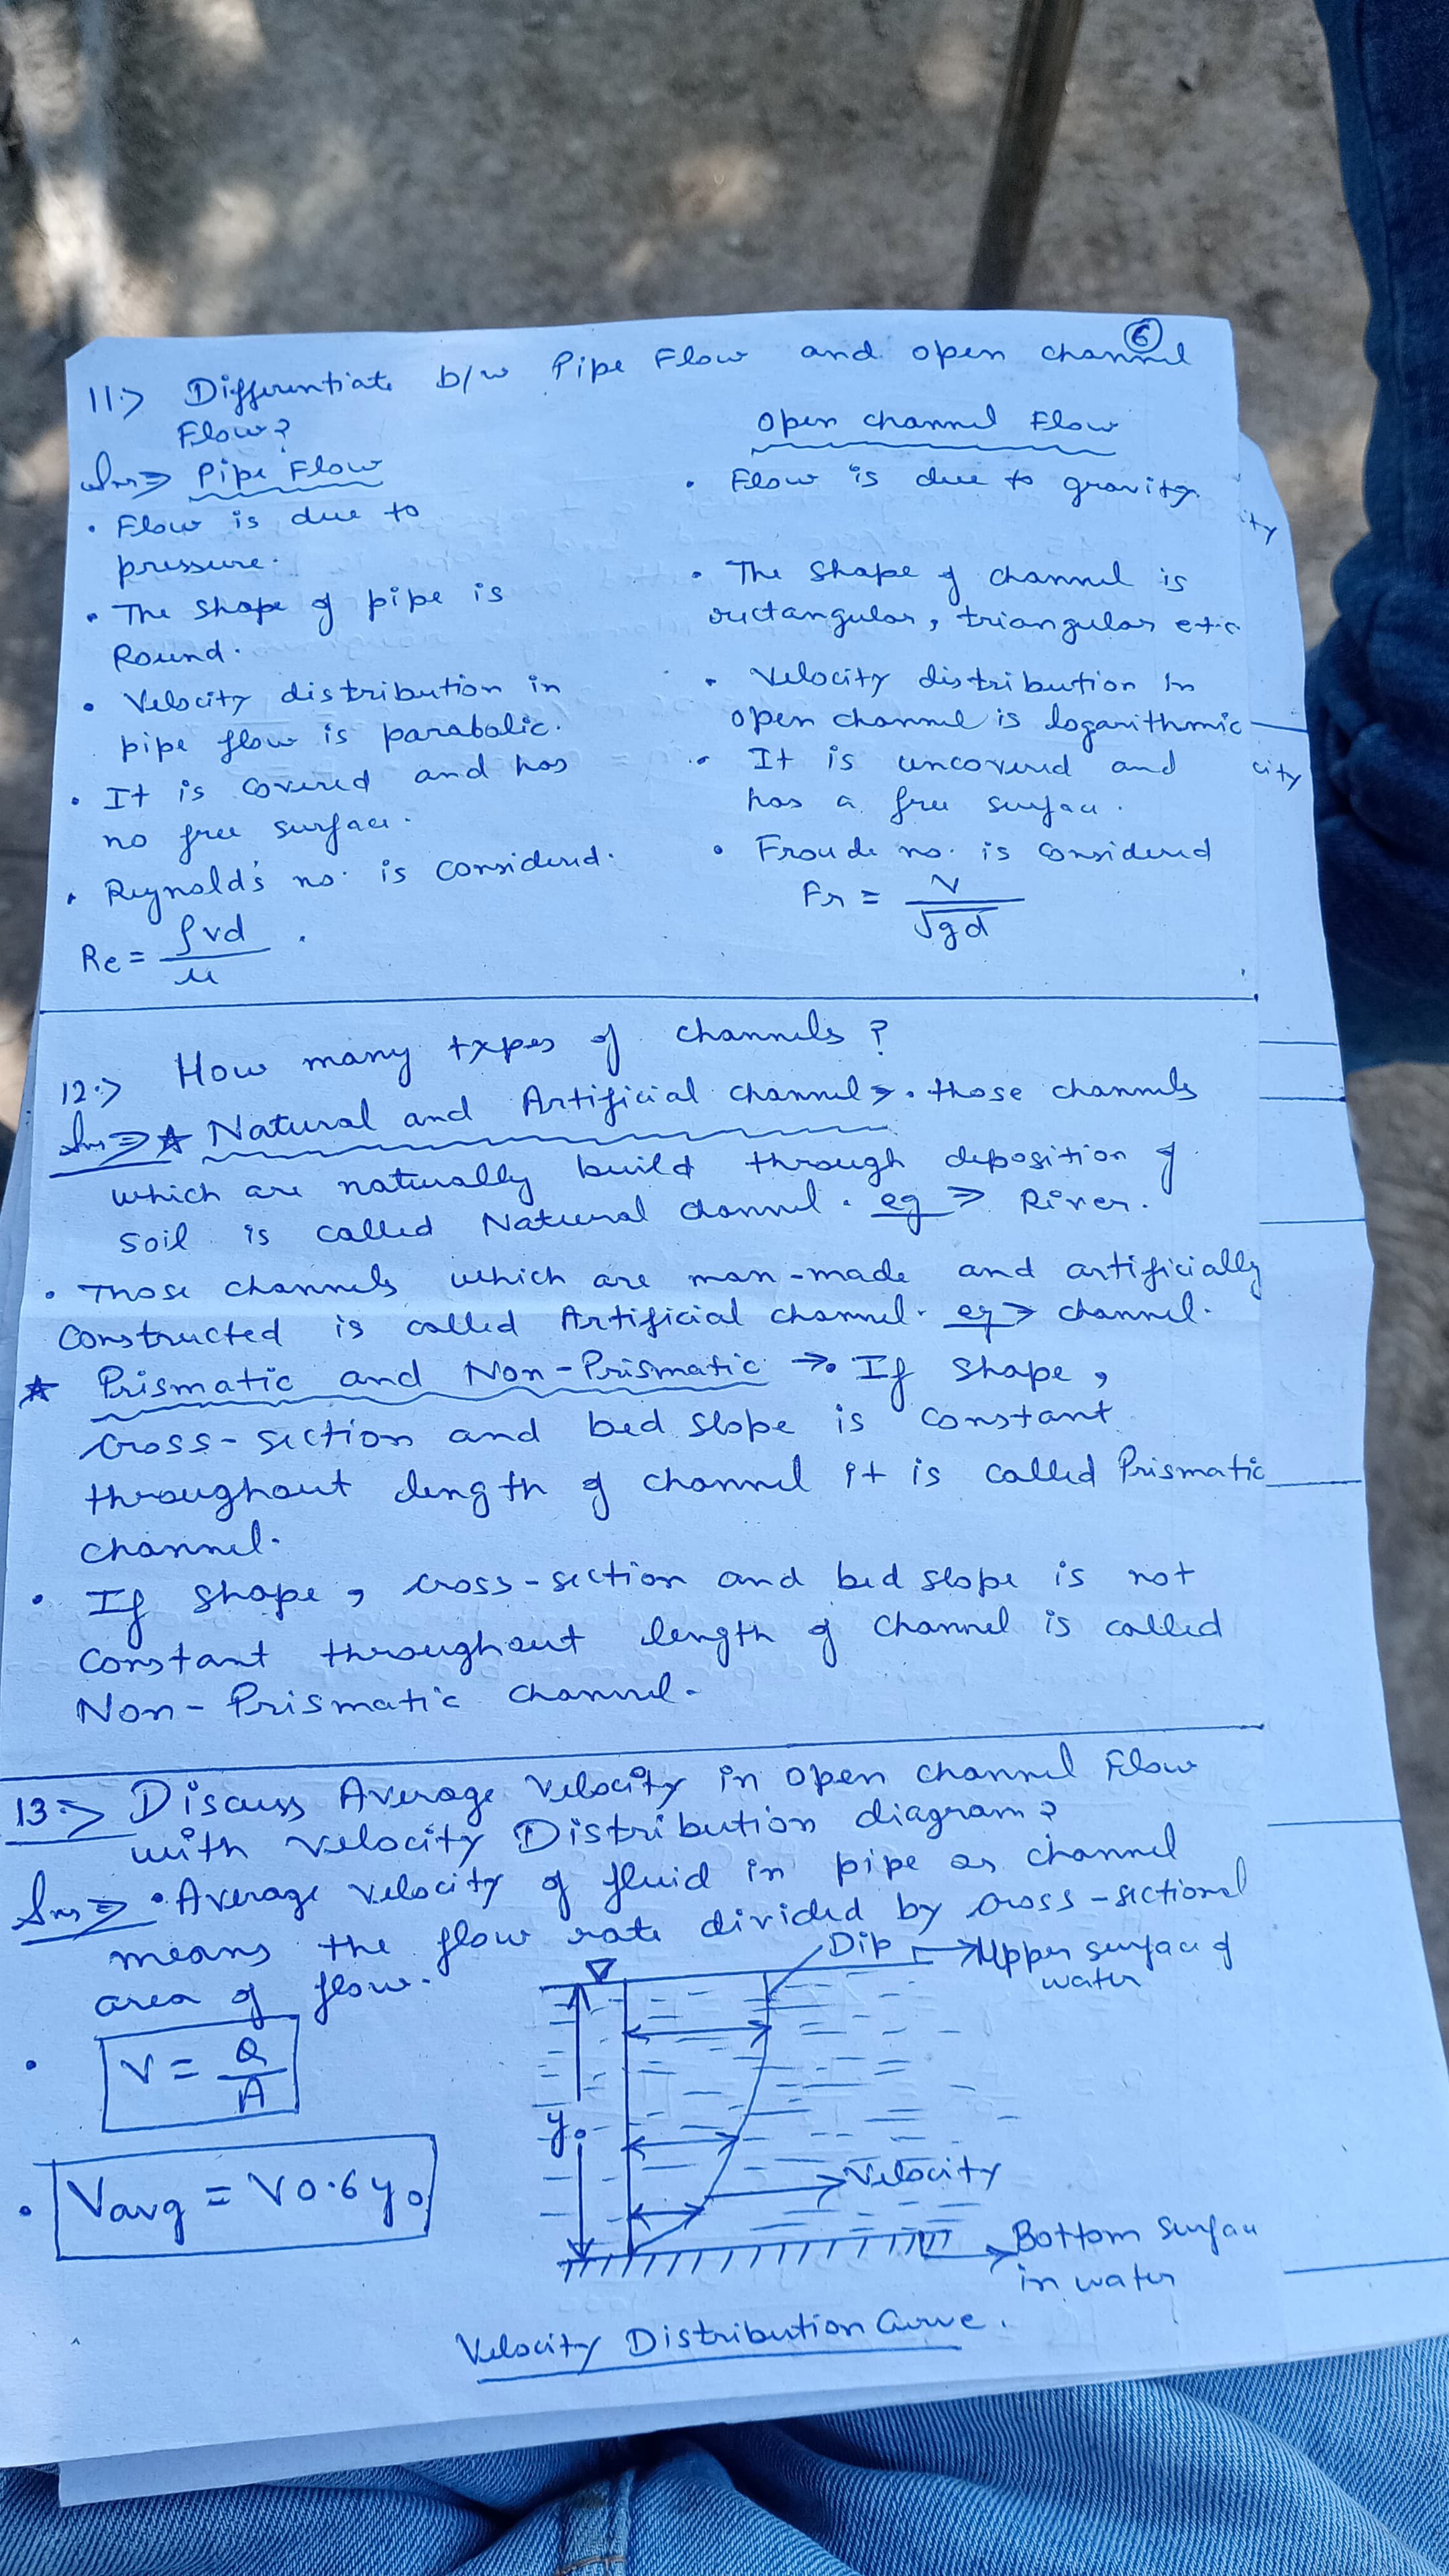 6
11.> Differentiate b/w Pipe Flow and open channel
Flow?
Ans=> Pipe Flow
• Flow is due to
pressure.
• The shape of pipe is
Round.
• Velocity distribution in
pipe flow is parabolic.
• It is covered and has
no free surface.
• Reynold's no. is considered.
Re = ρvd / μ .
Open channel Flow
• Flow is due to gravity.
• The shape of channel is
rectangular, triangular etc.
• Velocity distribution in
open channel is logarithmic
• It is uncovered and
has a free surface.
• Froude no. is considered
Fr = V / √gd
ity
city
12.> How many types of channels?
Ans=>☆ Natural and Artificial channel > • those channels
which are naturally build through deposition of
soil is called Natural channel. eg => River.
• Those channels which are man-made and artificially
constructed is called Artificial channel. eg => channel.
☆ Prismatic and Non-Prismatic →• If shape,
cross-section and bed slope is constant
throughout length of channel it is called Prismatic
channel.
• If shape, cross-section and bed slope is not
constant throughout length of channel is called
Non-Prismatic channel.
13.=> Discuss Average velocity in open channel Flow
with velocity Distribution diagram?
Ans=> • Average velocity of fluid in pipe or channel
means the flow rate divided by cross-sectional
area of flow.
• V = Q / A
• Vavg = V0.6y₀
Dip
Upper surface of
water
y₀
Velocity
Bottom surface
in water
Velocity Distribution Curve.